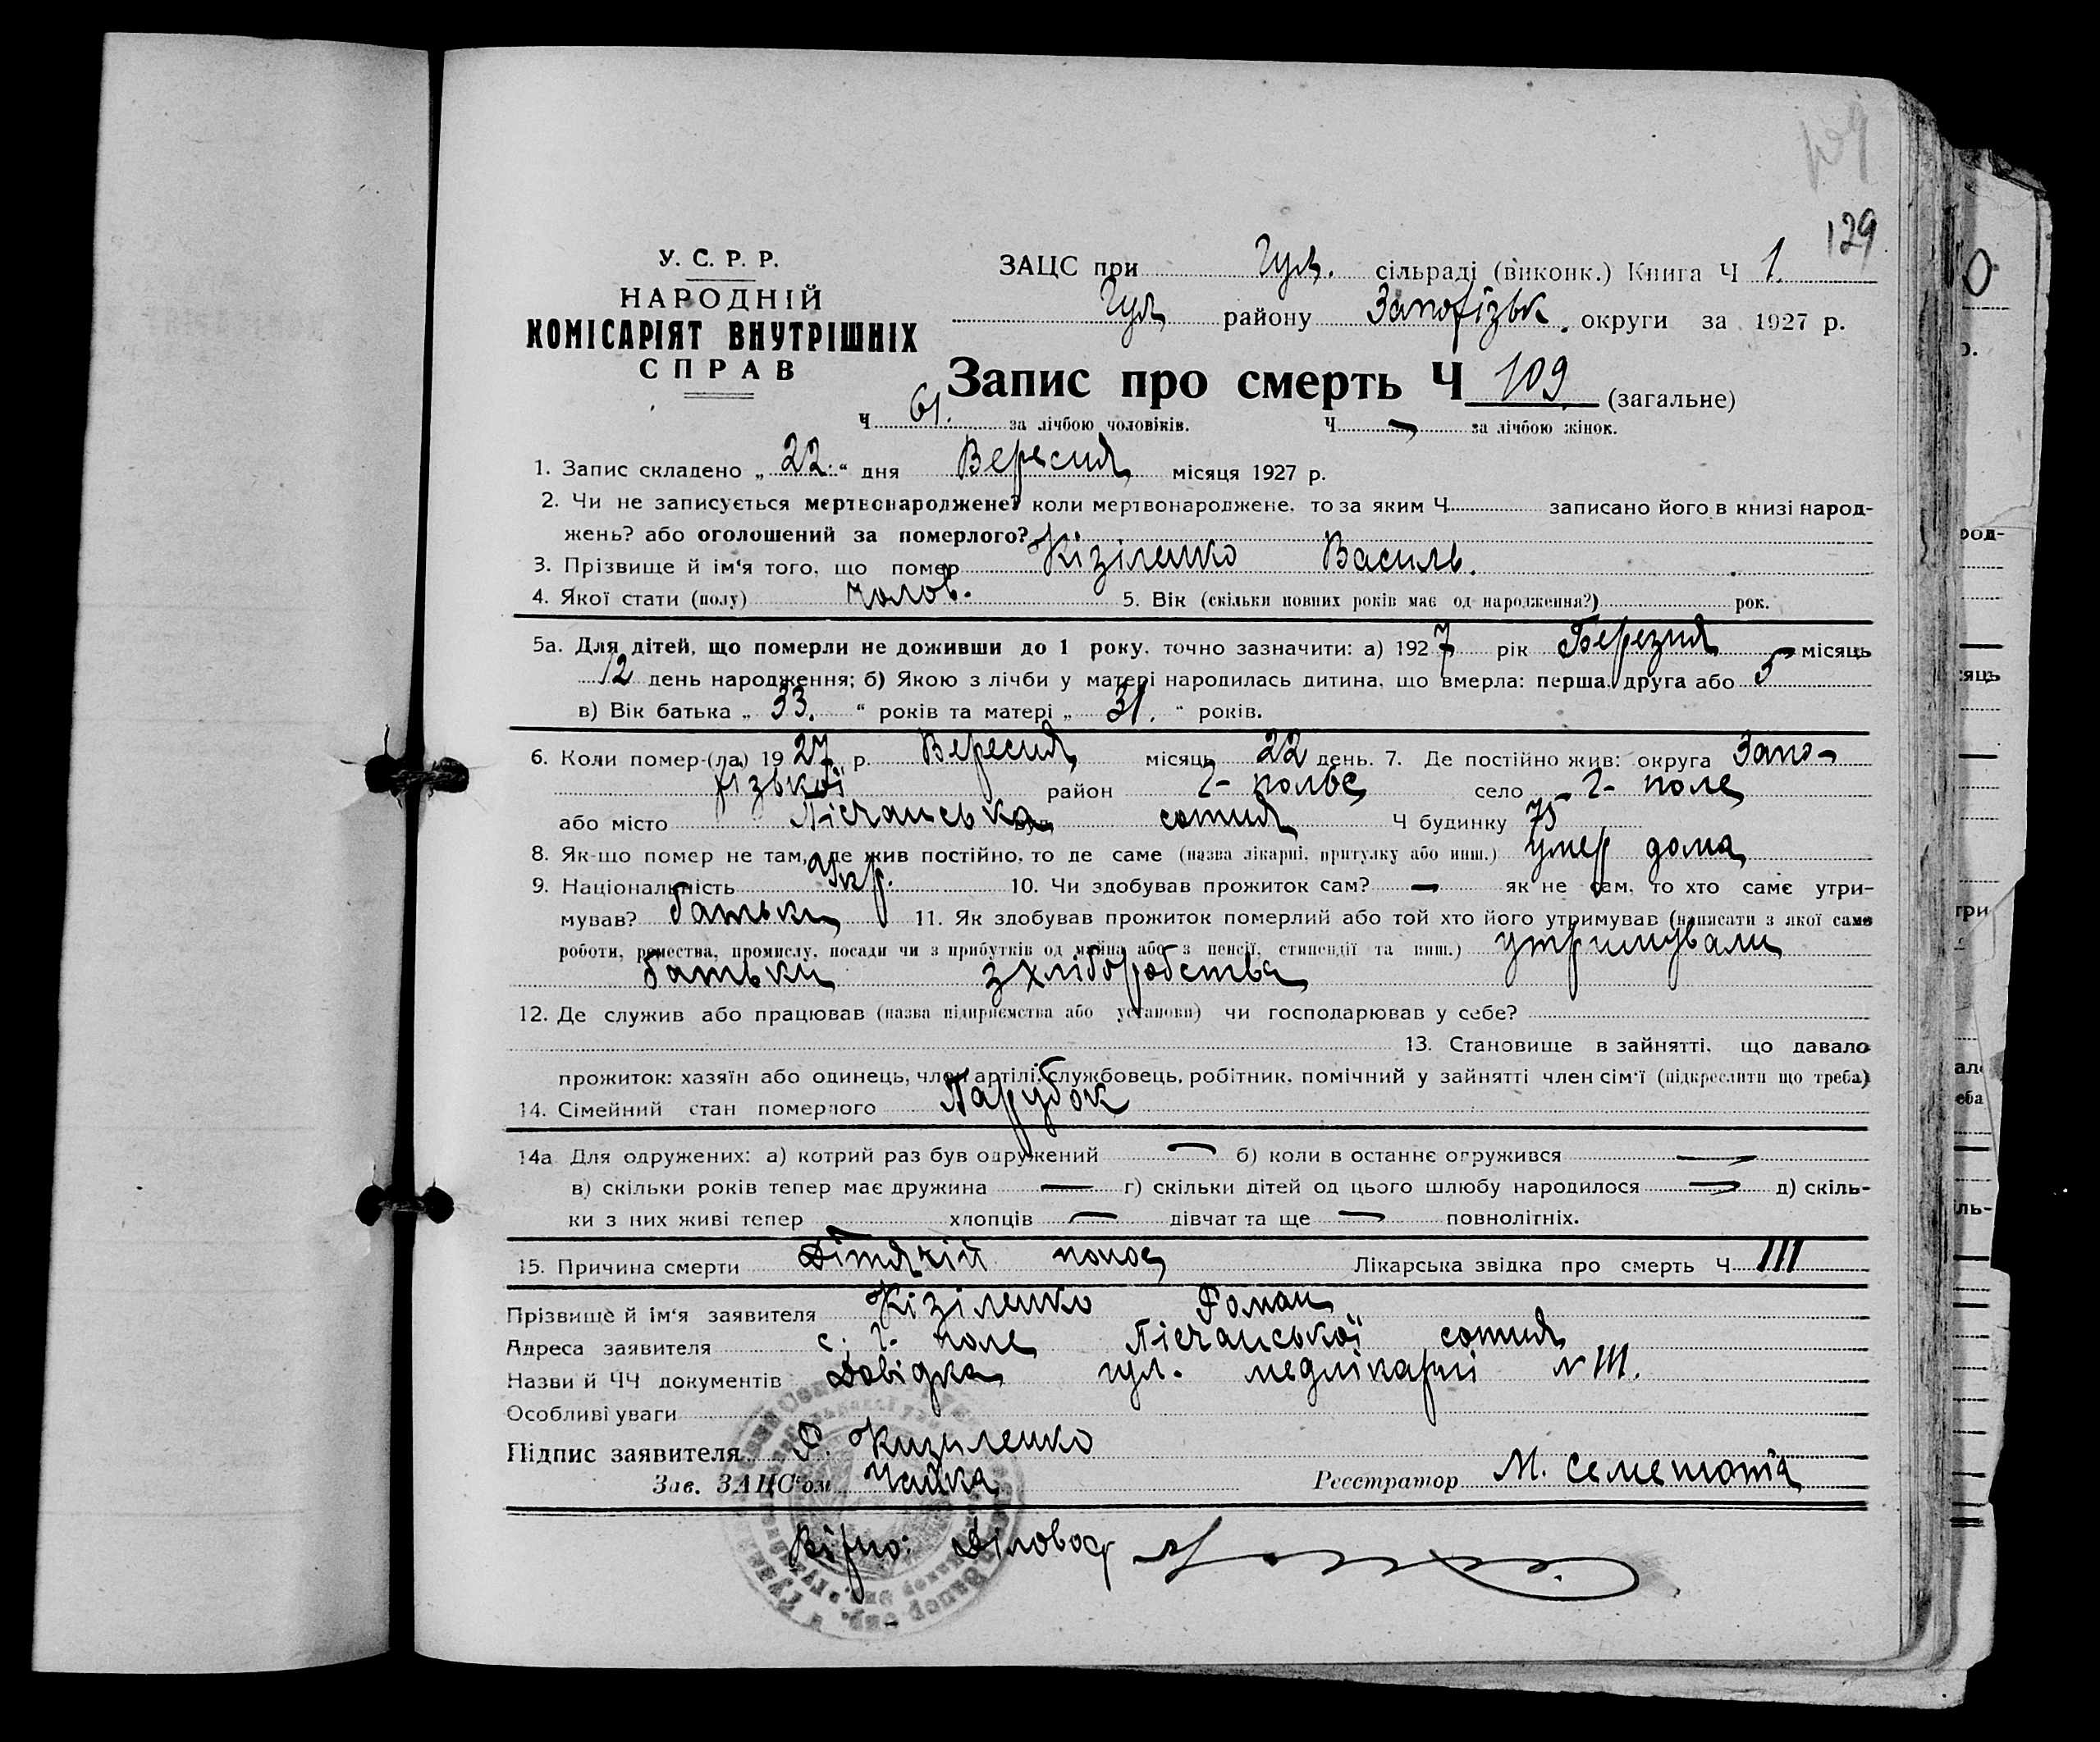 129
У. С. Р. Р.
НАРОДНІЙ
КОМІСАРІЯТ ВНУТРІШНІХ
СПРАВ
ЗАЦС при Гул. сільраді (виконк.) Книга Ч 1.
Гул району Запорізьк. округи за 1927 р.
Запис про смерть Ч 109 (загальне)
Ч 61. за лічбою чоловіків. Ч — за лічбою жінок.
1. Запис складено „ 22 “ дня Вересня місяця 1927 р.
2. Чи не записується мертвонароджене? коли мертвонароджене, то за яким Ч записано його в книзі народ-
жень? або оголошений за померлого?
3. Прізвище й ім‘я того, що помер Кізіленко Василь.
4. Якої стати (полу) Чолов. 5. Вік (скільки повних років має од народження?) рок.
5а. Для дітей, що померли не доживши до 1 року, точно зазначити: а) 1927 рік Березня місяць
12 день народження; б) Якою з лічби у матері народилась дитина, що вмерла: перша, друга або 5
в) Вік батька „ 33. “ років та матері „ 31. “ років.
6. Коли помер-(ла) 1927 р. Вересня місяць 22 день. 7. Де постійно жив: округа Запо-
різької район Г-польс село Г- поле
або місто Пісчанська вул. сотня Ч будинку 75
8. Як-що помер не там, де жив постійно, то де саме (назва лікарні, притулку або инш.) умер дома
9. Національність Укр. 10. Чи здобував прожиток сам? — як не сам, то хто саме утри-
мував? батьки 11. Як здобував прожиток померлий або той хто його утримував (написати з якої саме
роботи, ремества, промислу, посади чи з прибутків од майна або з пенсії, стипендії та инш.) утримували
батьки з хліборобства
12. Де служив або працював (назва підприємства або установи) чи господарював у себе?
13. Становище в зайнятті, що давало
прожиток: хазяїн або одинець, член артілі, службовець, робітник, помічний у зайнятті член сім‘ї (підкреслити що треба)
14. Сімейний стан померлого Парубок
14а Для одружених: а) котрий раз був одружений — б) коли в останнє одружився —
в) скільки років тепер має дружина — г) скільки дітей од цього шлюбу народилося — д) скіль-
ки з них живі тепер — хлопців — дівчат та ще — повнолітніх.
15. Причина смерти Дітячій понос Лікарська звідка про смерть Ч 111
Прізвище й ім‘я заявителя Кізіленко Роман
Адреса заявителя с. Г- поле Пісчанської сотня
Назви й ЧЧ документів Довідка гул. медлікарні N 111.
Особливі уваги
Підпис заявителя Р. Кизиленко
Зав. ЗАЦС‘ом Чайка Реєстратор М. Семенюта
Вірно: Діловод